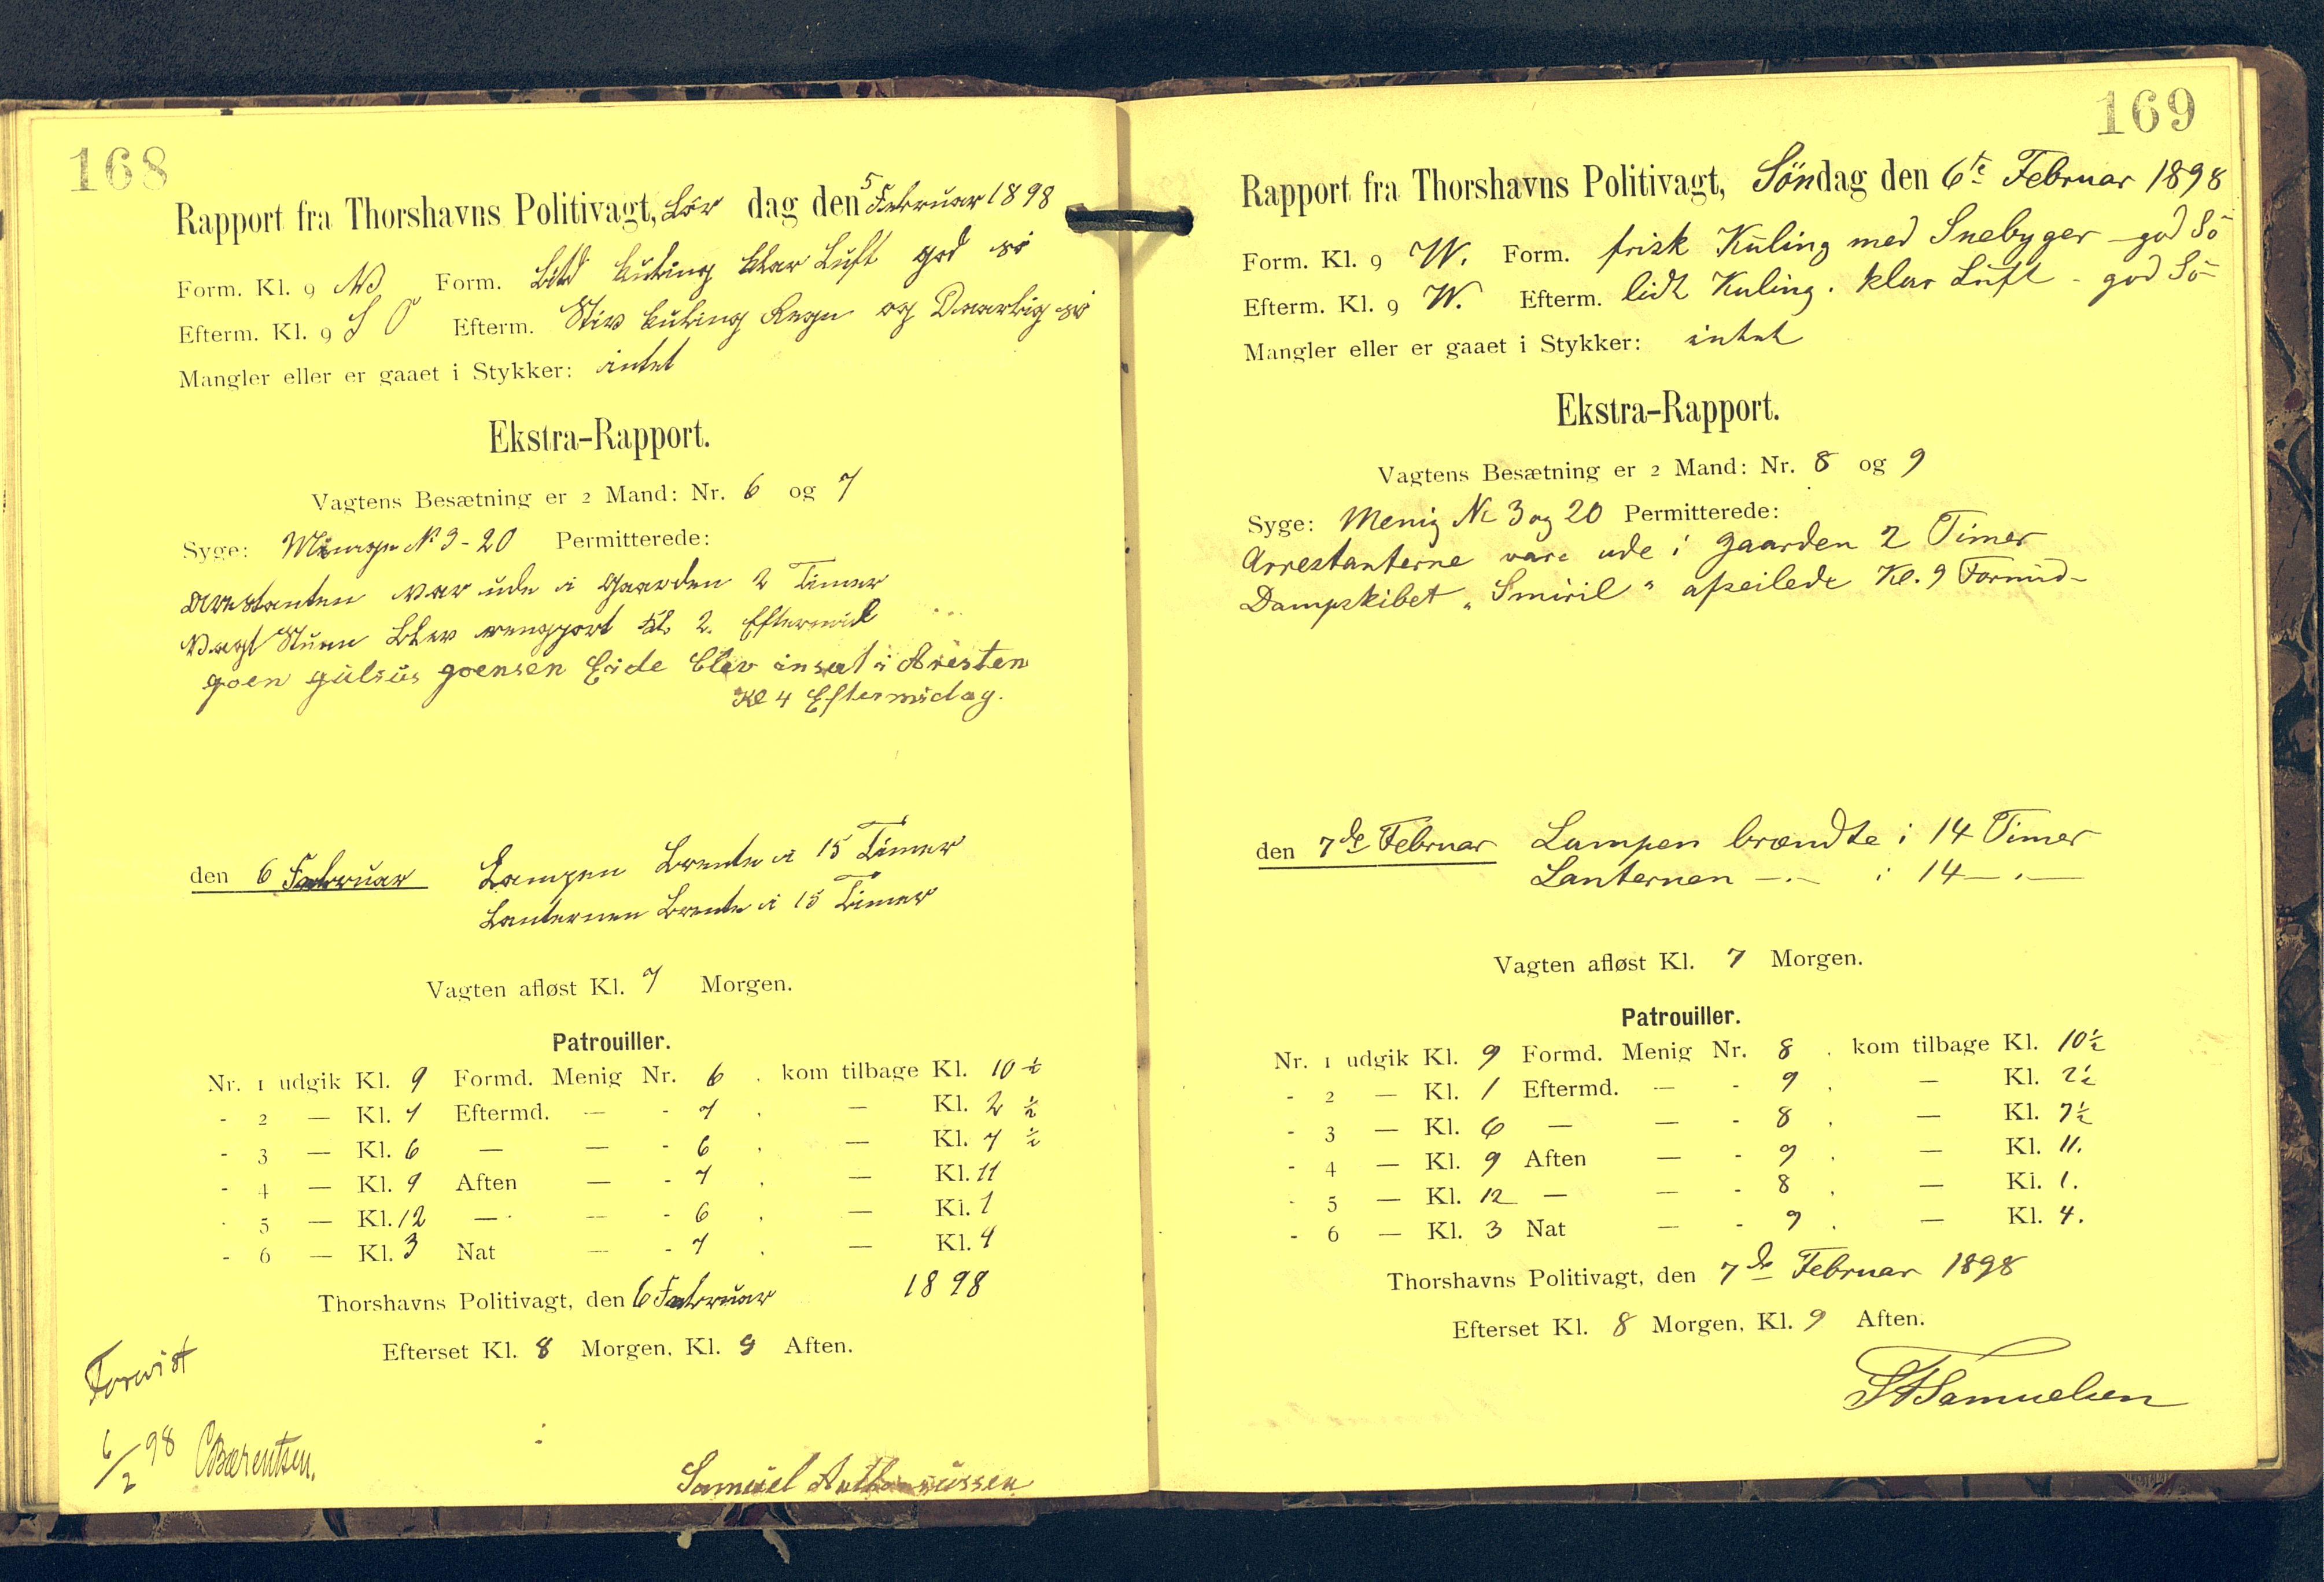 168
Rapport fra Thorshavns Politivagt, Lör dag den 5 Februar 1898
Form. Kl. 9 NV Form. Lidt kuling klar Luft god sö
Efterm. Kl. 9 S O Efterm. Stiv kuling Regn og Daarlig sö
Mangler eller er gaaet i Stykker: intet
Ekstra-Rapport.
Vagtens Besætning er 2 Mand: Nr. 6 og 7
Syge: N° 3 - 20 Permitterede:
Arestanten var ude i Gaarden 2 Timer
Vagt Stuen blev rengjort kl. 2. Eftermid
goen gulius goensen Eide blev insat i Aresten
Kl 4 Eftermidag.
den 6 Februar Lampen brente i 15 Timer
Lanternen brente i 15 Timer
Vagten afløst Kl. 7 Morgen.
Patrouiller.
Nr. 1 udgik Kl. 9 Formd. Menig Nr. 6 . kom tilbage Kl. 10 ½
- 2 — Kl. 1 Eftermd. — - 7 . — Kl. 2 ½
- 3 — Kl. 6 — — - 6 . — Kl. 7 ½
- 4 — Kl. 9 Aften — - 7 . — Kl. 11
- 5 — Kl. 12 — — - 6 . — Kl. 1
- 6 — Kl. 3 Nat — - 7 . — Kl. 4
Thorshavns Politivagt, den 6 Februar 1898
Efterset Kl. 8 Morgen, Kl. 9 Aften.
Forevist
6/2 98 CBærentsen.
Samuel
169
Rapport fra Thorshavns Politivagt, Söndag den 6te Februar 1898
Form. Kl. 9 W. Form. frisk Kuling med Snebyger - god Sö
Efterm. Kl. 9 W. Efterm. lidt Kuling. klar Luft - god Sö
Mangler eller er gaaet i Stykker: intet
Ekstra-Rapport.
Vagtens Besætning er 2 Mand: Nr. 8 og 9
Syge: Menig Nr 3 og 20 Permitterede:
Arrestanterne vare ude i Gaarden 2 Timer
Dampskibet „Smiril" afseilede Kl. 9 Formid-
den 7de Februar Lampen brændte i 14 Timer
Lanternen —.— i 14 —.—
Vagten afløst Kl. 7 Morgen.
Patrouiller.
Nr. 1 udgik Kl. 9 Formd. Menig Nr. 8 . kom tilbage Kl. 10½
- 2 — Kl. 1 Eftermd. — - 9 . — Kl. 2½
- 3 — Kl. 6 — — - 8 . — Kl. 7½
- 4 — Kl. 9 Aften — - 9 . — Kl. 11.
- 5 — Kl. 12 — — - 8 . — Kl. 1.
- 6 — Kl. 3 Nat — - 9 . — Kl. 4.
Thorshavns Politivagt, den 7de Februar 1898
Efterset Kl. 8 Morgen, Kl. 9 Aften.
Samuelsen